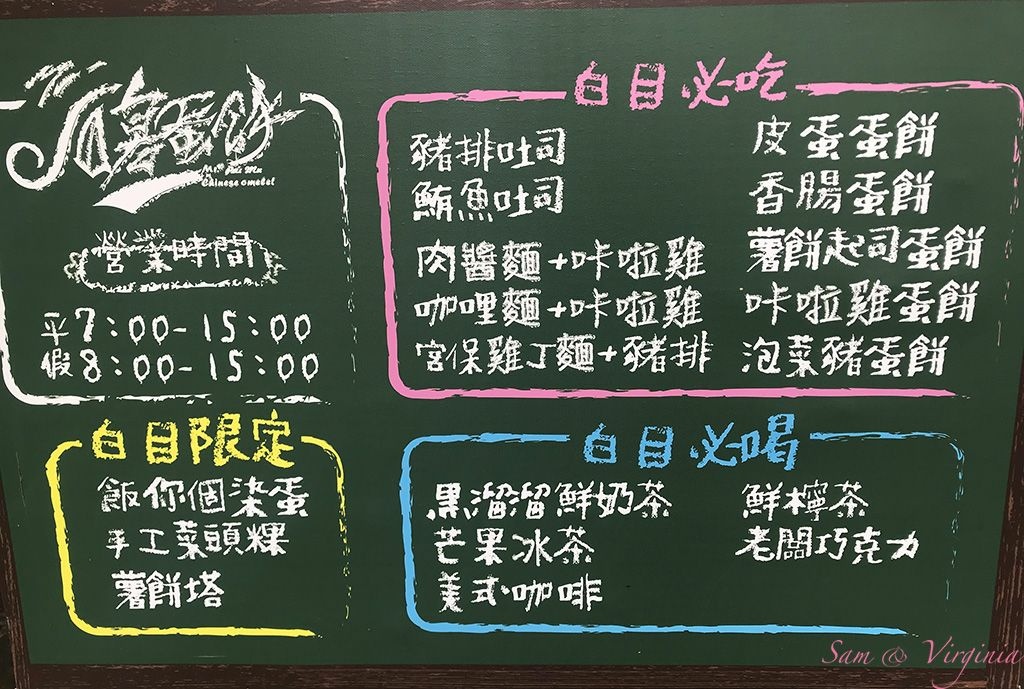 Mr. Pai Mu
Chinese omelet
營業時間
平7:00-15:00
假8:00-15:00
白目限定
飯你個染蛋
手工菜頭粿
薯餅塔
白目必吃
豬排吐司
鮪魚吐司
肉醬麵+咔啦雞
咖哩麵+咔啦雞
宮保雞丁麵+豬排
皮蛋蛋餅
香腸蛋餅
薯餅起司蛋餅
咔啦雞蛋餅
泡菜豬蛋餅
白目必喝
黑溜溜鮮奶茶
芒果冰茶
美式咖啡
鮮檸茶
老闆巧克力
Sam & Virginia